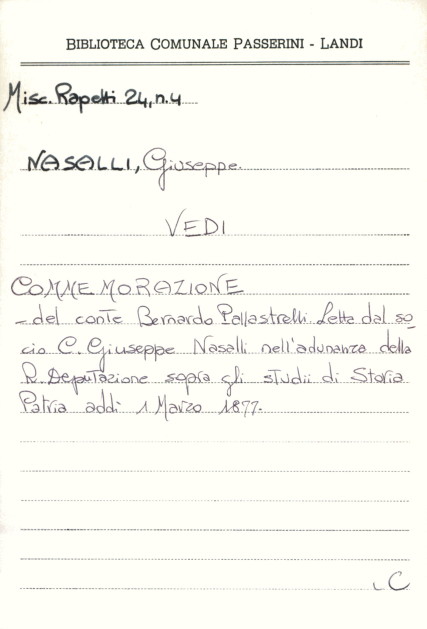 BIBLIOTECA COMUNALE PASSERINI - LANDI
Misc. Rapetti 24, n. 4
NASALLI, Giuseppe
VEDI
COMMEMORAZIONE
- del conte Bernardo Pallastrelli. Letta dal so-
cio C. Giuseppe Nasalli nell'adunanza della
R. Deputazione sopra gli studii di Storia
Patria addì 1 Marzo 1877.
C